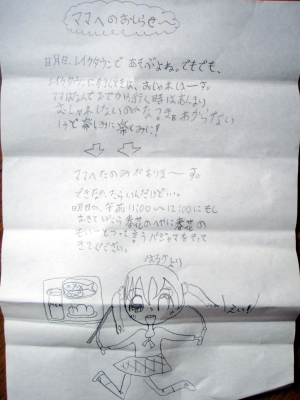 ママへのおしらせ〜
明日、レイクタウンであそぶよね。でもでも、
レイクタウンに行くときは、おしゃれしまーす。
ママはなんでおでかけ行く時はあんまり
おしゃれしないのかなつまあわからない
けど楽しみに楽しみに!!
ママへたのみがありまーす。
できなかったらいいんだけど…。
明日の、午前11:00〜12:00にもし
おきていたら春花のへやに春花の
せいーとっって言うパジャマをもって
きてください。
はるかより
しえい!